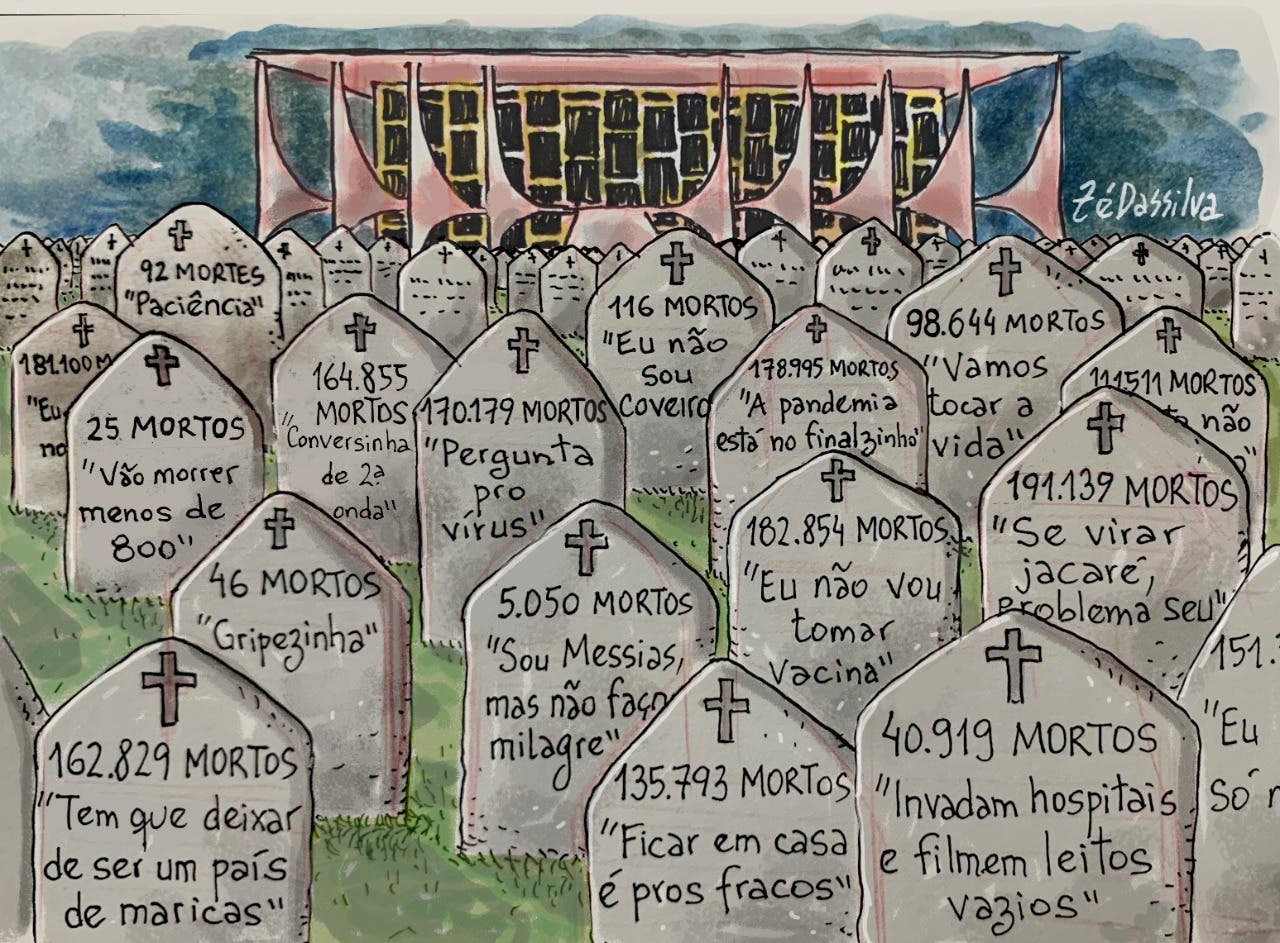 ZéDassilva
92 MORTES
"Paciência"
116 MORTOS
"Eu não
sou
coveiro
98.644 MORTOS
"Vamos
tocar a
vida"
181.100 M
"Eu
no
25 MORTOS
"Vão morrer
menos de
800"
164.855
MORTOS
"Conversinha
de 2ª
onda"
170.179 MORTOS
"Pergunta
pro
vírus"
178.995 MORTOS
"A pandemia
está no finalzinho"
111511 MORTOS
não
191.139 MORTOS
"Se virar
jacaré,
problema seu"
46 MORTOS
"Gripezinha"
5.050 MORTOS
"Sou Messias,
mas não faço
milagre"
182.854 MORTOS
"Eu não vou
tomar
vacina"
151.
"Eu
Só
162.829 MORTOS
"Tem que deixar
de ser um país
de maricas"
135.793 MORTOS
"Ficar em casa
é pros fracos"
40.919 MORTOS
"Invadam hospitais
e filmem leitos
vazios"